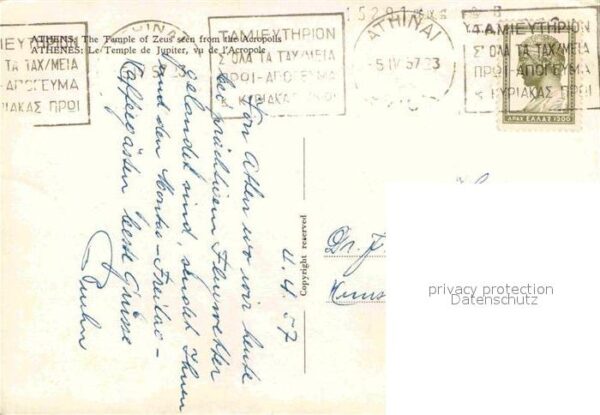 15291
ATHENS: The Temple of Zeus seen from the Acropolis
ATHENES: Le Temple de Jupiter, vu de l'Acropole
ΜΙΕΥΤΗΡΙΟΝ
ΤΑ ΤΑΧ/ΜΕΙΑ
-ΑΠΟΓΕΥΜΑ
ΥΡΙΑΚΑΣ ΠΡΩΙ
ΤΑΜΙΕΥΤΗΡΙΟΝ
Σ' ΟΛΑ ΤΑ ΤΑΧ/ΜΕΙΑ
ΠΡΩΙ-ΑΠΟΓΕΥΜΑ
ΚΥΡΙΑΚΑΣ ΠΡΩΙ
ΑΘΗΝΑΙ
-5.IV 57.23
ΤΑΜΙΕΥΤΗΡΙΟΝ
Σ' ΟΛΑ ΤΑ ΤΑΧ/ΜΕΙΑ
ΠΡΩΙ-ΑΠΟΓΕΥΜΑ
ΚΥΡΙΑΚΑΣ ΠΡΩΙ
ΔΡΑΧ. ΕΛΛΑΣ 1200
4.4.57
Von Athen wo wir heute
bei prächtigem
gelandet sind, sendet Ihnen
und den Montag-Freitag-
Kaffeegästen beste Grüsse
Copyright reserved
Dr.
privacy protection
Datenschutz